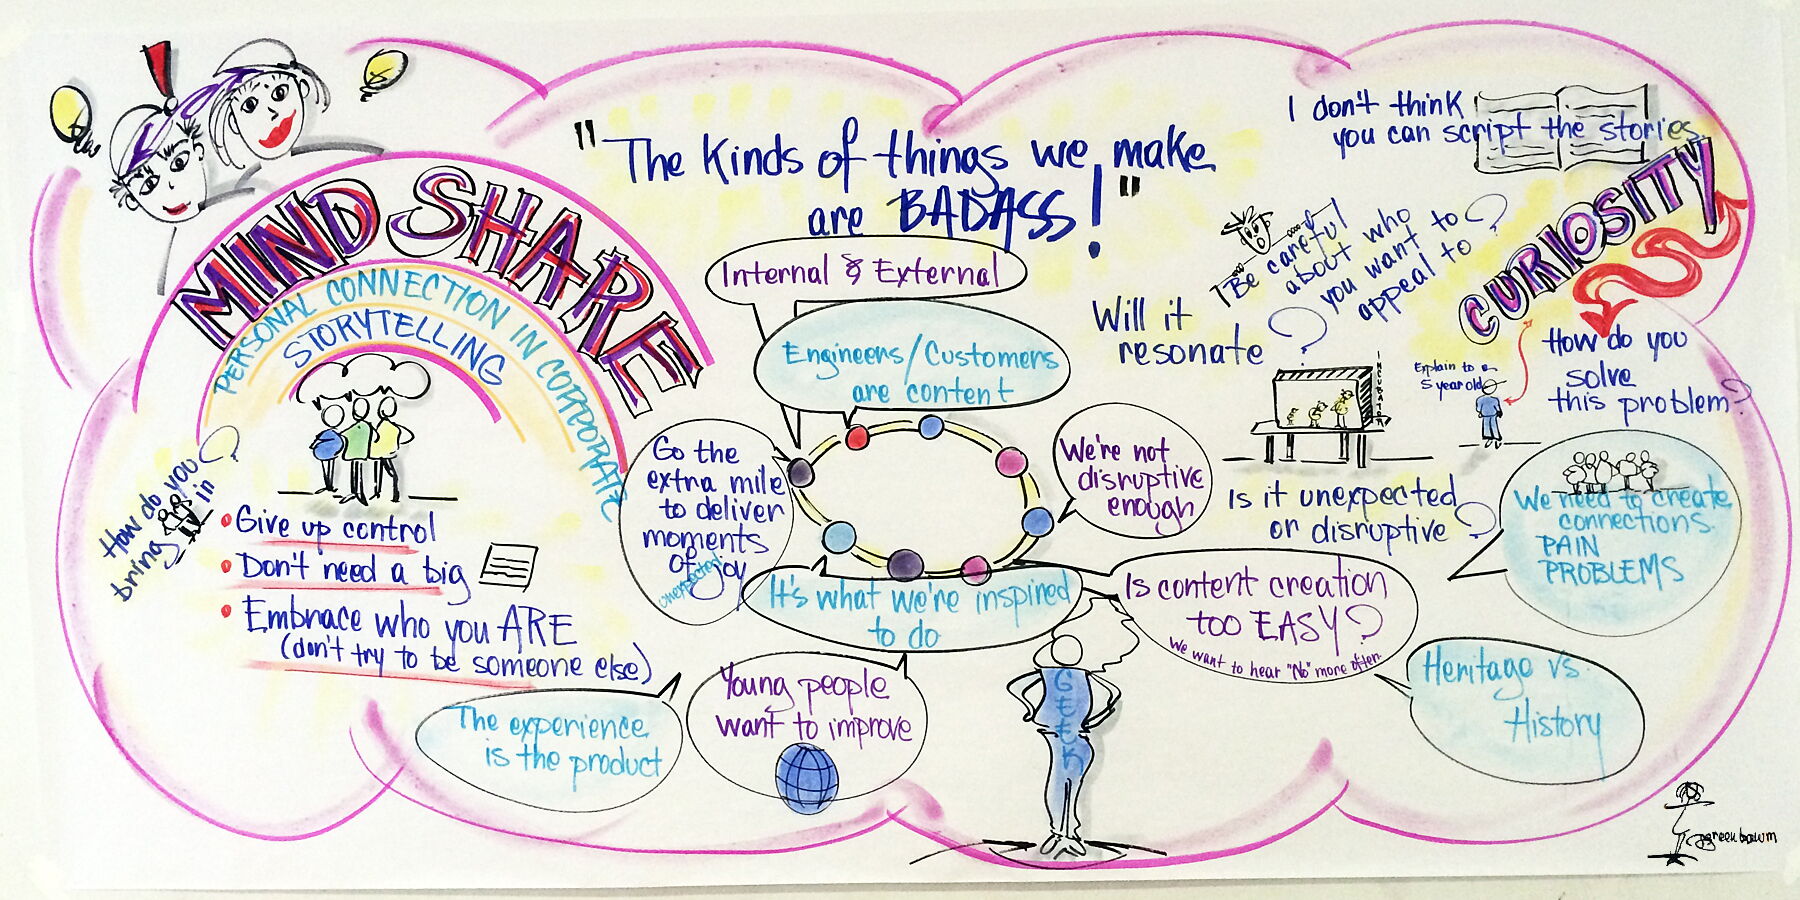 MIND SHARE
PERSONAL CONNECTION IN CORPORATE
STORYTELLING
How do you
bring in ?
• Give up control
• Don't need a big
• Embrace who you ARE
(don't try to be someone else)
"The kinds of things we make
are BADASS!"
Internal & External
Engineers/Customers
are content
Go the
extra mile
to deliver
moments
of joy
unexpected
We're not
disruptive
enough
It's what we're inspired
to do
The experience
is the product
Young people
want to improve
GEEK
Is content creation
too EASY?
We want to hear "No" more often.
Heritage vs.
History
I don't think
you can script the stories
CURIOSITY
Be careful
about who
you want to
appeal to ?
Will it
resonate ?
INCUBATOR
Explain to a
5 year old
How do you
solve
this problem?
Is it unexpected
or disruptive ?
We need to create
connections.
PAIN
PROBLEMS
greenbaum